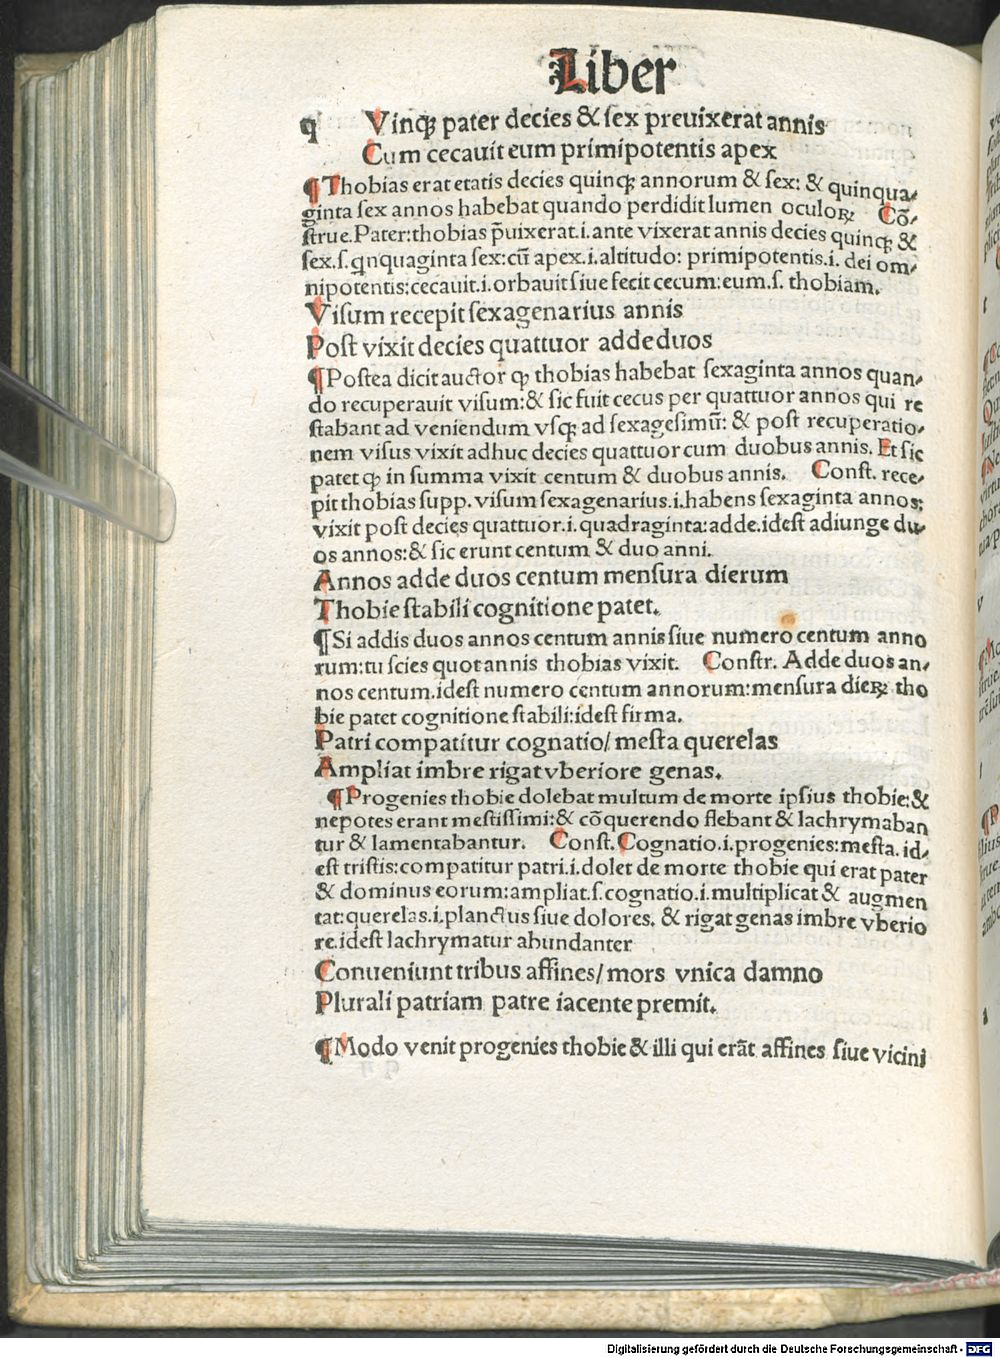 Liber
q Vinqꝫ pater decies & ſex preuixerat annis
Cum cecauit eum primipotentis apex
¶Thobias erat etatis decies quinqꝫ annorum & ſex: & quinqua-
ginta ſex annos habebat quando perdidit lumen oculoꝝ Cō-
ſtrue.Pater:thobias p̄uixerat.i.ante vixerat annis decies quinqꝫ &
ſex.ſ.qnquaginta ſex:cū apex.i.altitudo: primipotentis.i. dei om-
nipotentis:cecauit.i.orbauit ſiue fecit cecum:eum.ſ. thobiam.
Viſum recepit ſexagenarius annis
Poſt vixit decies quattuor adde duos
¶Poſtea dicit auctor ꝙ thobias habebat ſexaginta annos quan-
do recuperauit viſum:& ſic fuit cecus per quattuor annos qui re
ſtabant ad veniendum vſqꝫ ad ſexageſimū: & poſt recuperatio-
nem viſus vixit adhuc decies quattuor cum duobus annis. Et ſic
patet ꝙ in ſumma vixit centum & duobus annis. Conſt. rece-
pit thobias ſupp. viſum ſexagenarius.i.habens ſexaginta annos:
vixit poſt decies quattuor.i. quadraginta:adde.ideſt adiunge du-
os annos:& ſic erunt centum & duo anni.
Annos adde duos centum menſura dierum
Thobie ſtabili cognitione patet.
¶Si addis duos annos centum annis ſiue numero centum anno
rum:tu ſcies quot annis thobias vixit. Conſtr. Adde duos an-
nos centum.ideſt numero centum annorum:menſura dieꝝ tho
bie patet cognitione ſtabili:ideſt firma.
Patri compatitur cognatio/ meſta querelas
Ampliat imbre rigat vberiore genas.
¶Progenies thobie dolebat multum de morte ipſius thobie:&
nepotes erant meſtiſſimi:& cōquerendo flebant & lachrymaban
tur & lamentabantur. Conſt.Cognatio.i.progenies:meſta. id-
eſt triſtis:compatitur patri.i.dolet de morte thobie qui erat pater
& dominus eorum:ampliat.ſ.cognatio.i.multiplicat & augmen
tat:querelas.i.planctus ſiue dolores. & rigat genas imbre vberio
re.ideſt lachrymatur abundanter
Conueniunt tribus affines/ mors vnica damno
Plurali patriam patre iacente premit.
¶Modo venit progenies thobie & illi qui erāt affines ſiue vicini
Digitalisierung gefördert durch die Deutsche Forschungsgemeinschaft - DFG